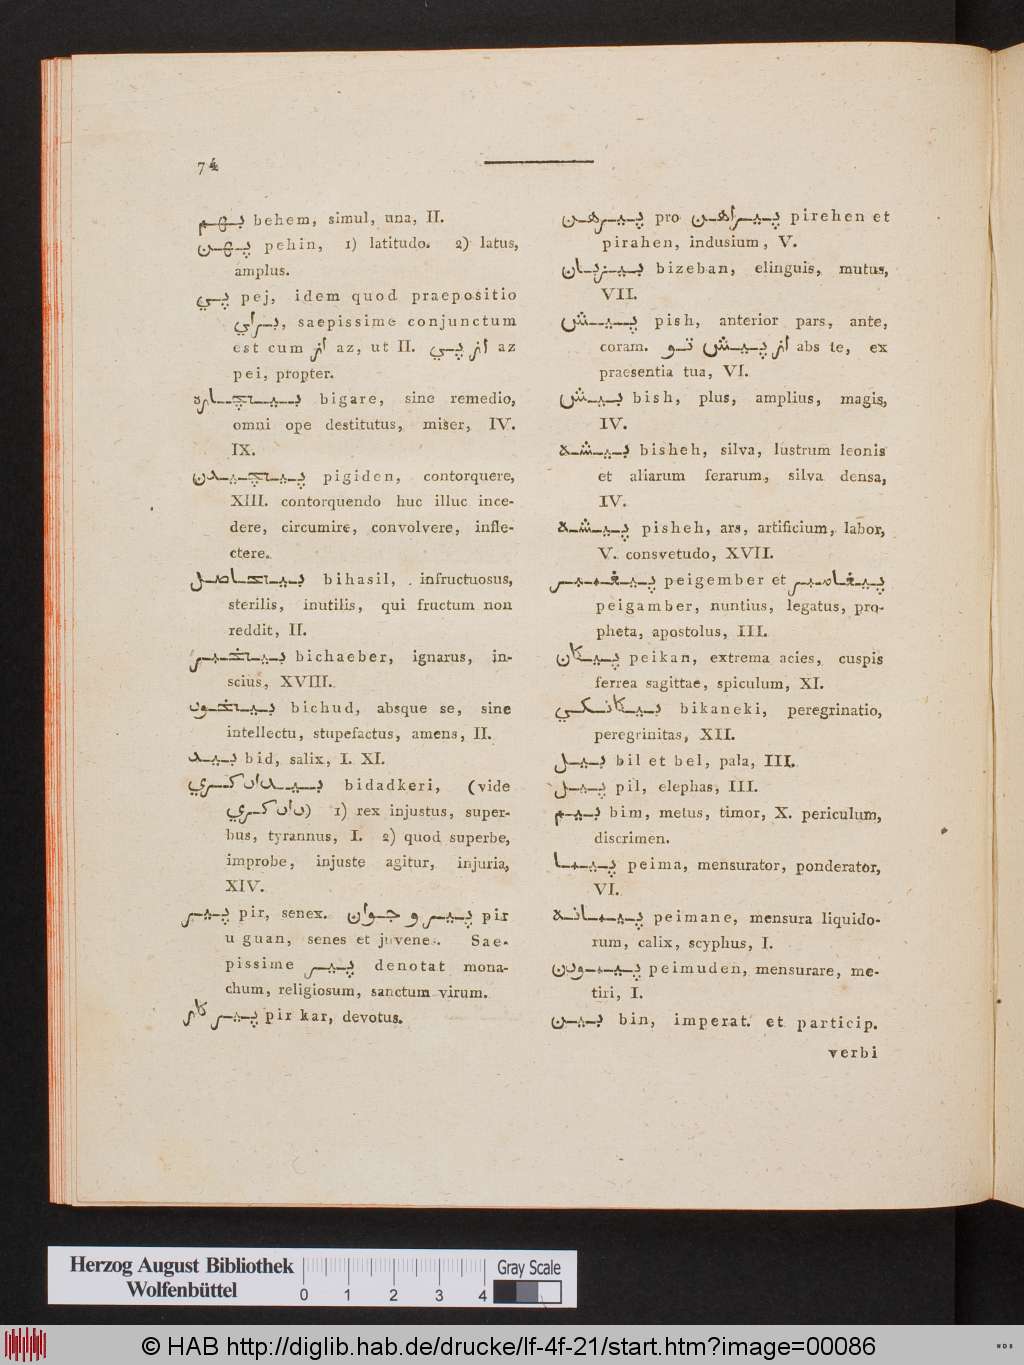 74
بهم behem, simul, una, II.
پهن pehin, 1) latitudo. 2) latus,
amplus.
پي pej, idem quod praepositio
براي, saepissime conjunctum
est cum از az, ut II. از پي az
pei, propter.
بيچاره bigare, sine remedio,
omni ope destitutus, miser, IV.
IX.
پيچيدن pigiden, contorquere,
XIII. contorquendo huc illuc ince-
dere, circumire, convolvere, infle-
ctere.
بيحاصل bihasil, infructuosus,
sterilis, inutilis, qui fructum non
reddit, II.
بيخبر bichaeber, ignarus, in-
scius, XVIII.
بيخود bichud, absque se, sine
intellectu, stupefactus, amens, II.
بيد bid, salix, I. XI.
بيدادكري bidadkeri, (vide
دادكري) 1) rex injustus, super-
bus, tyrannus, I. 2) quod superbe,
improbe, injuste agitur, injuria,
XIV.
پير pir, senex. پير و جوان pir
u guan, senes et juvenes. Sae-
pissime پير denotat mona-
chum, religiosum, sanctum virum.
پير كار pir kar, devotus.
پيرهن pro پيراهن pirehen et
pirahen, indusium, V.
بيزبان bizeban, elinguis, mutus,
VII.
پيش pish, anterior pars, ante,
coram. از پيش تو abs te, ex
praesentia tua, VI.
بيش bish, plus, amplius, magis,
IV.
بيشه bisheh, silva, lustrum leonis
et aliarum ferarum, silva densa,
IV.
پيشه pisheh, ars, artificium, labor,
V. consvetudo, XVII.
پيغمبر peigember et پيغامبر
peigamber, nuntius, legatus, pro-
pheta, apostolus, III.
پيكان peikan, extrema acies, cuspis
ferrea sagittae, spiculum, XI.
بيكانكي bikaneki, peregrinatio,
peregrinitas, XII.
بيل bil et bel, pala, III.
پيل pil, elephas, III.
بيم bim, metus, timor, X. periculum,
discrimen.
پيما peima, mensurator, ponderator,
VI.
پيمانه peimane, mensura liquido-
rum, calix, scyphus, I.
پيمودن peimuden, mensurare, me-
tiri, I.
بين bin, imperat. et particip.
verbi
Herzog August Bibliothek
Wolfenbüttel
0 1 2 3 4
Gray Scale
© HAB http://diglib.hab.de/drucke/lf-4f-21/start.htm?image=00086